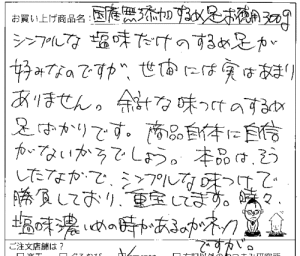 お買い上げ商品名：国産無添加するめ足お徳用300g
シンプルな塩味だけのするめ足が
好みなのですが、世間には実はあまり
ありません。余計な味つけのするめ
足ばかりです。商品自体に自信
がないからでしょう。本品は、そう
したなかで、シンプルな味つけで
勝負しており、重宝してます。時々、
塩味濃いめの時があるのがネック
ですが。
ご注文店舗は？